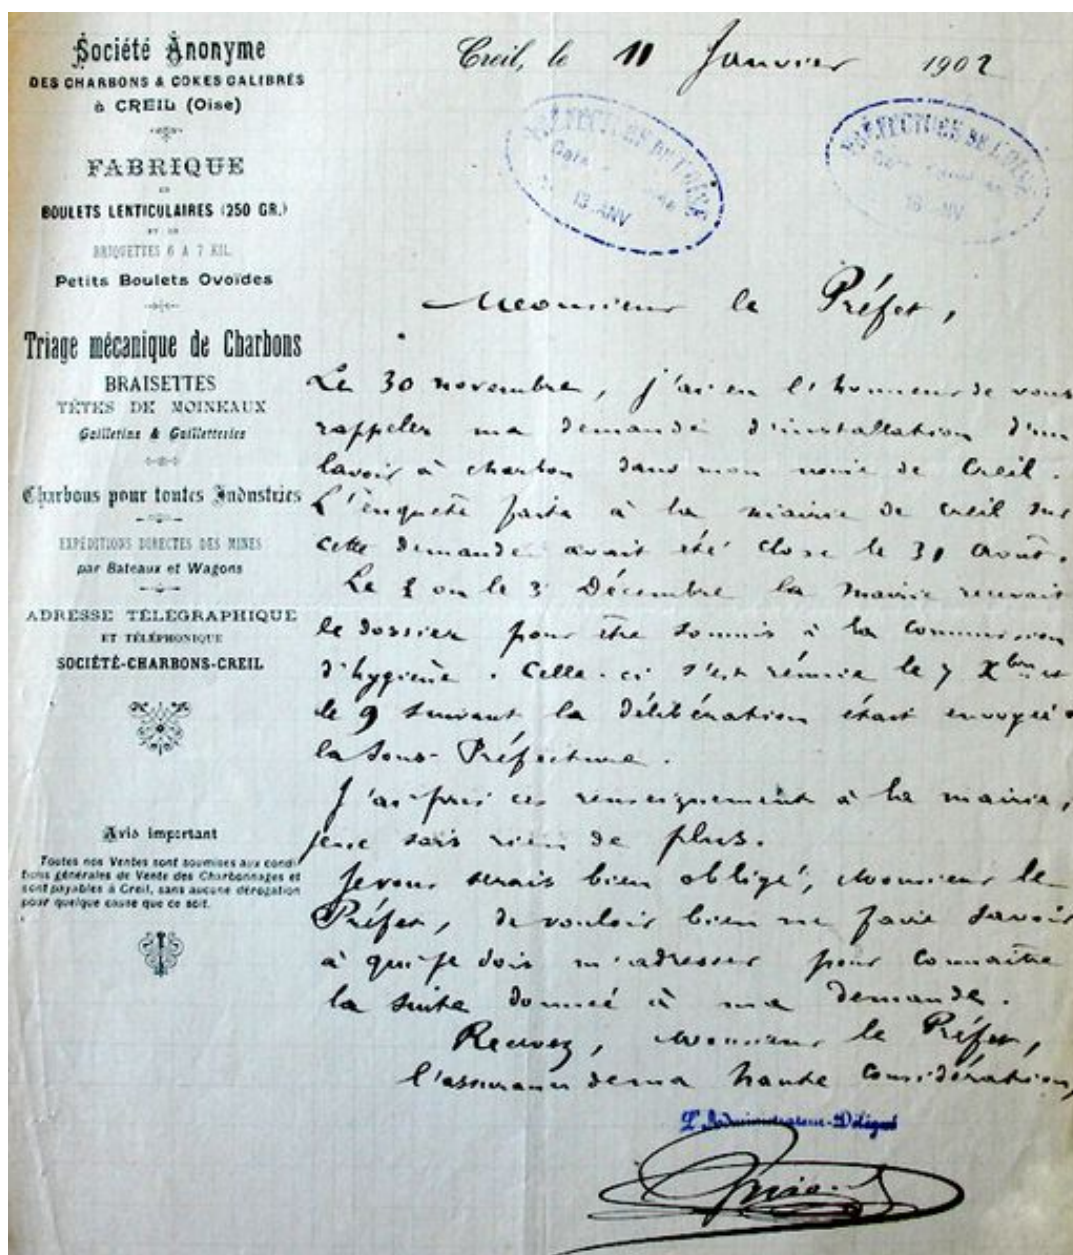 Société Anonyme
DES CHARBONS & COKES CALIBRÉS
à CREIL (Oise)
FABRIQUE
DE
BOULETS LENTICULAIRES (250 GR.)
ET DE
BRIQUETTES 6 A 7 KIL.
Petits Boulets Ovoïdes
Triage mécanique de Charbons
BRAISETTES
TÊTES DE MOINEAUX
Gailletins & Gailletteries
Charbons pour toutes Industries
EXPÉDITIONS DIRECTES DES MINES
par Bateaux et Wagons
ADRESSE TÉLÉGRAPHIQUE
ET TÉLÉPHONIQUE
SOCIÉTÉ-CHARBONS-CREIL
Avis important
Toutes nos Ventes sont soumises aux condi-
tions générales de Vente des Charbonnages et
sont payables à Creil, sans aucune dérogation
pour quelque cause que ce soit.
Creil, le 11 Janvier 1902
PRÉFECTURE DE L'OISE
13 JANV
PRÉFECTURE DE L'OISE
JANV
Monsieur le Préfet,
Le 30 novembre, j'ai eu l'honneur de vous
rappeler ma demande d'installation d'un
lavoir à charbon dans mon usine de Creil.
L'enquête faite à la mairie de Creil sur
cette demande avait été close le 31 Août.
Le 2 ou le 3 Décembre la Mairie recevait
le dossier pour être soumis à la Commission
d'hygiène. Celle-ci s'est réunie le 7 Xbre et
le 9 suivant la délibération était envoyée à
la Sous-Préfecture.
J'ai pris ces renseignements à la mairie,
je ne sais rien de plus.
Je vous serais bien obligé, Monsieur le
Préfet, de vouloir bien me faire savoir
à qui je dois m'adresser pour connaître
la suite donnée à ma demande.
Recevez, Monsieur le Préfet,
l'assurance de ma haute considération,
L'Administrateur-Délégué